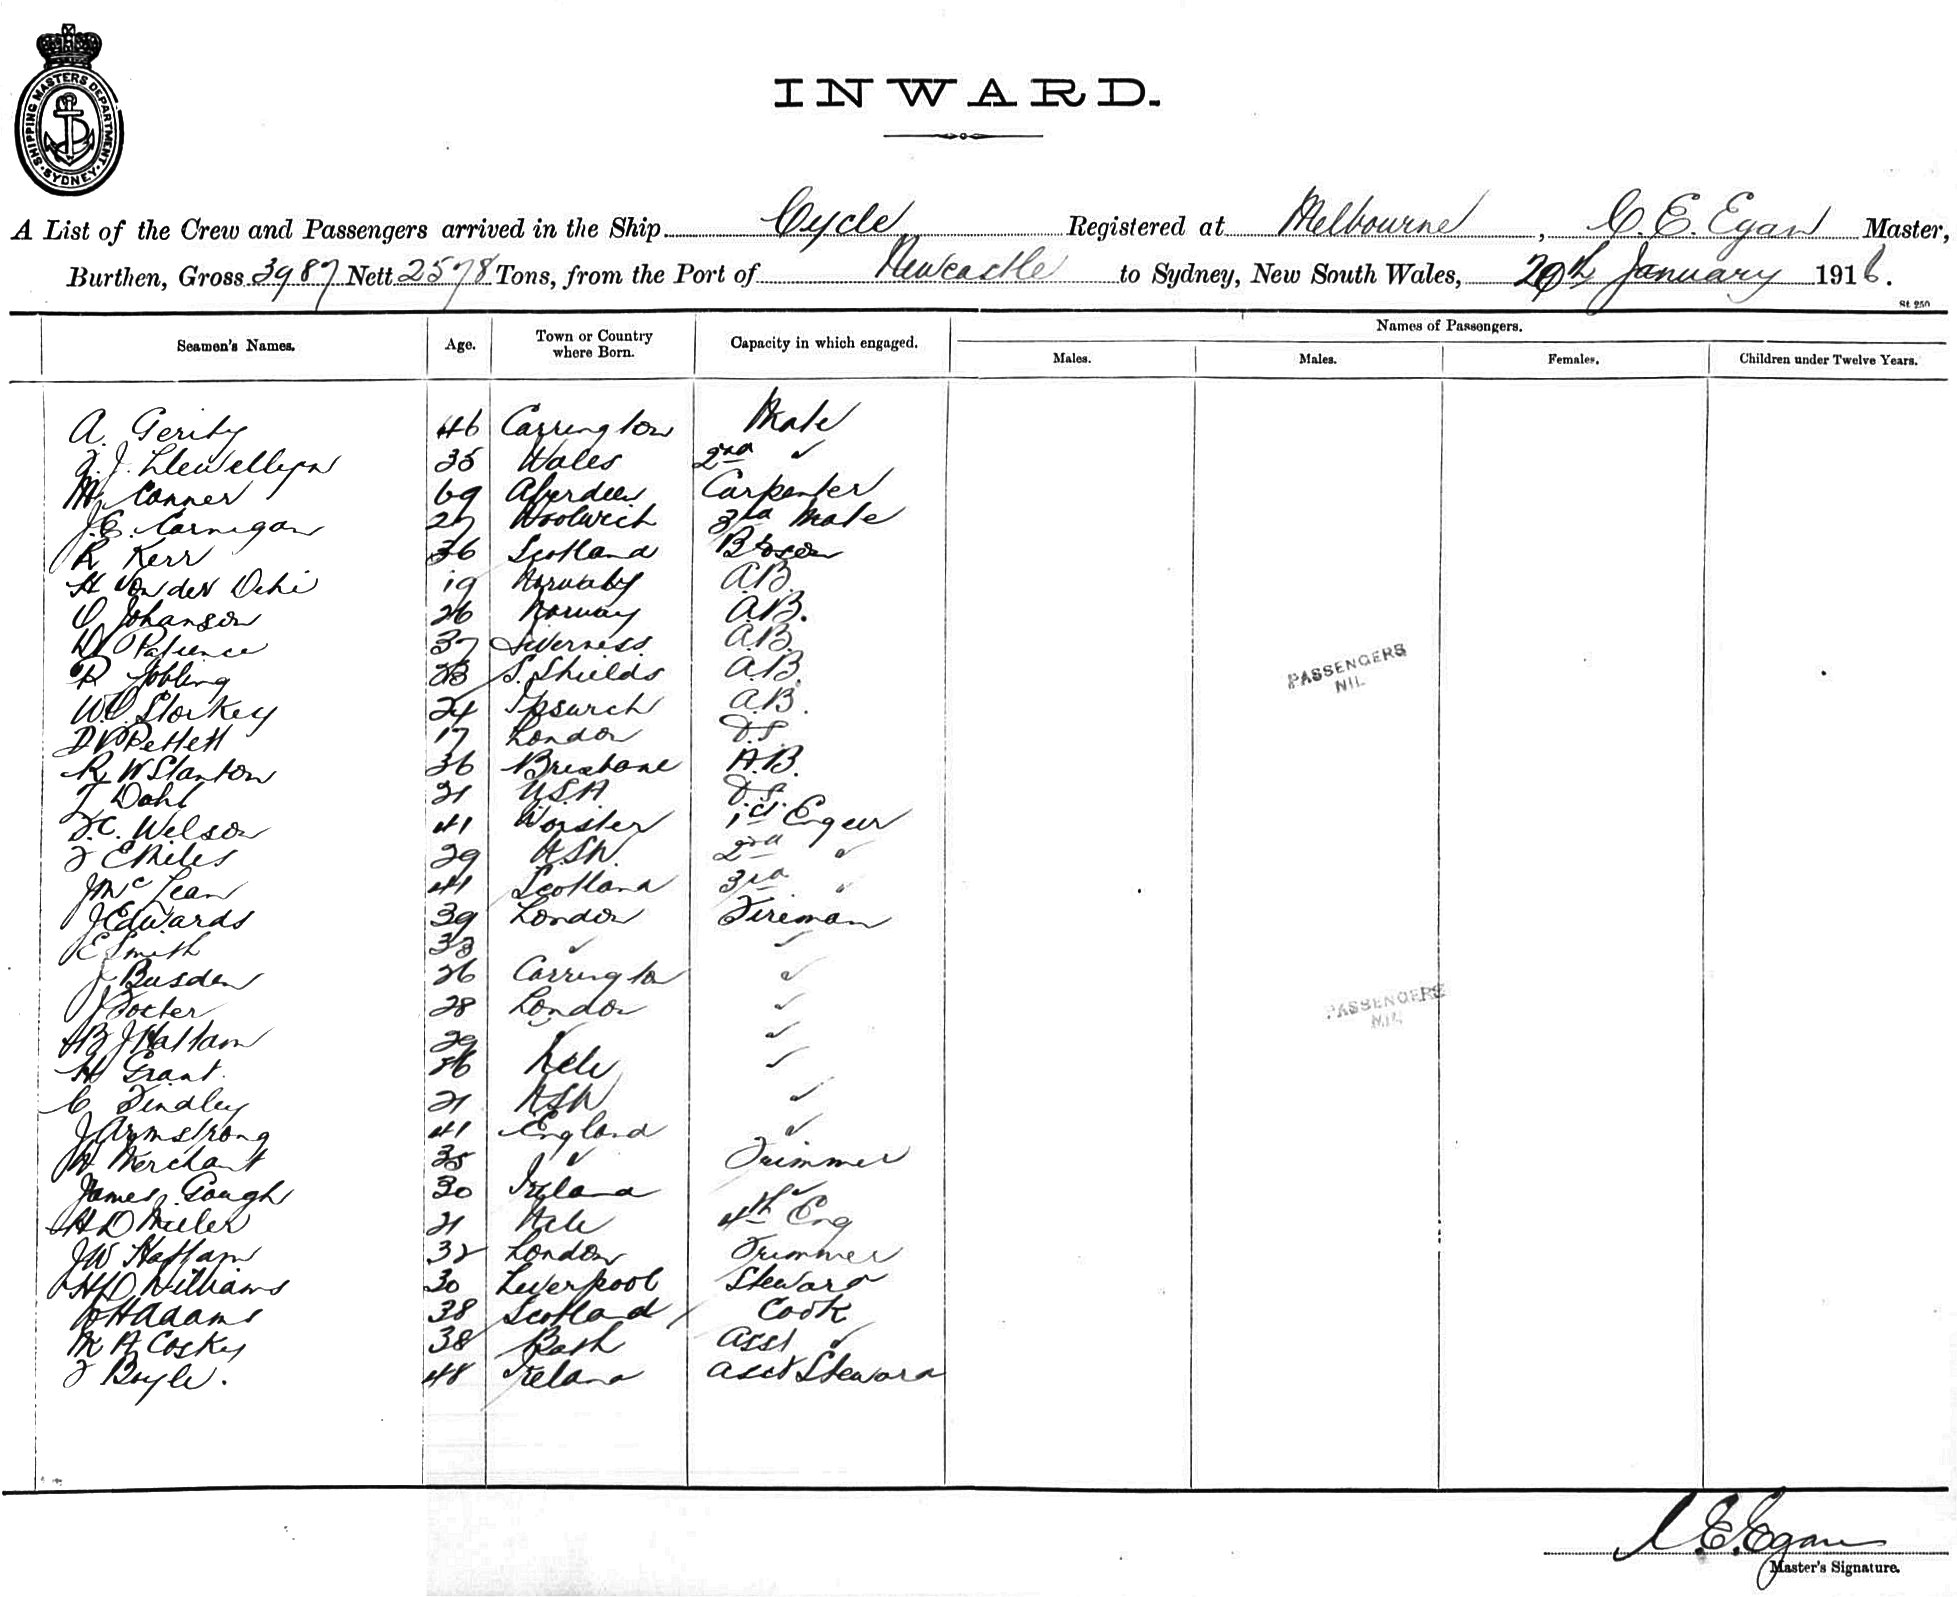 SHIPPING MASTERS DEPARTMENT
SYDNEY
INWARD.
A List of the Crew and Passengers arrived in the Ship Cycle Registered at Melbourne, C. E. Egan Master,
Burthen, Gross 3987 Nett 2578 Tons, from the Port of Newcastle to Sydney, New South Wales, 29th January 1916.
St. 250
Names of Passengers.
Seamen's Names. Age. Town or Country where Born. Capacity in which engaged. Males. Males. Females. Children under Twelve Years.
A. Gerity 46 Carrington Mate
J. Llewellyn 35 Wales 2nd ✓
M Conner 69 Aberdeen Carpenter
J.E. Carnegan 27 Woolwich 3rd Mate
R Kerr 36 Scotland Bosen
H Von der 19 A.B.
O Johanson 26 Norway A.B.
D Patience 37 Iverness A.B.
R Jobling 23 S. Shields A.B.
W.O. Storkey 24 Ipswich A.B.
Pettett 17 London
R W Stanton 36 Brisbane A.B.
T Dahl 21 U.S.A
Wilson 41 Worster 1st
E Miles 29 NSW. 2nd ✓
J Mc Lean 41 Scotland 3rd ✓
J Edwards 39 London Fireman
E Smith 33 ✓ ✓
J Busden 26 Carrington ✓
J Foster 28 London ✓
J Hallam 29 ✓ ✓
H Grant. 26 ✓
C Findley 21 NSW ✓
J Armstrong 41 England ✓
Merchant 35 ✓ Trimmer
James Gough 30 Ireland ✓
H D Miller 21 4th Eng
J W Hallam 32 London Trimmer
Williams 30 Liverpool Steward
H Adams 38 Scotland Cook
M A Coskey 38 Bath Asst ✓
Boyle. 48 Ireland Asst Steward
PASSENGERS
NIL
PASSENGERS
NIL
C.E. Egan
Master's Signature.